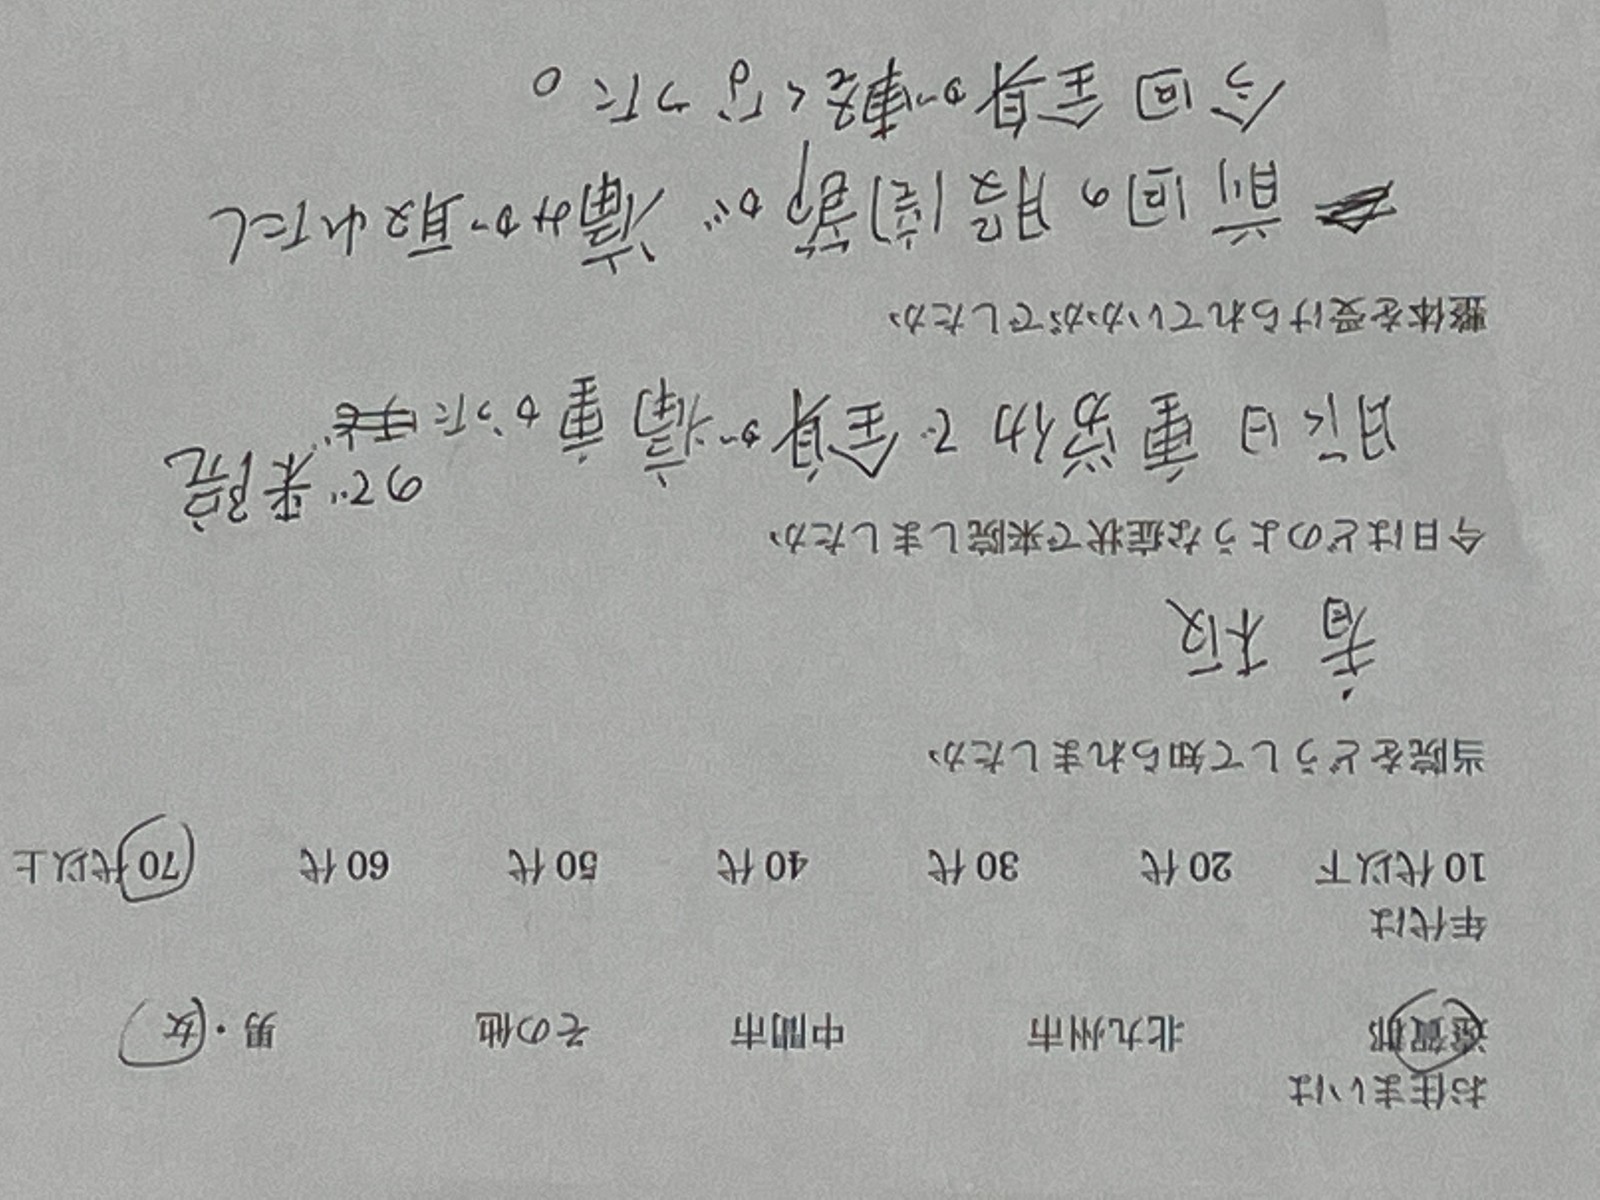 お住まいは
遠賀郡 北九州市 中間市 その他 男・女
年代は
10代以下 20代 30代 40代 50代 60代 70代以上
当院をどうして知られましたか
看板
今日はどのような症状で来院しましたか
昨日重労仂で全身が痛重かった
ので来院
整体を受けられていかがでしたか
前回の 部が 痛みが取れたし
今回全身が軽くなった。